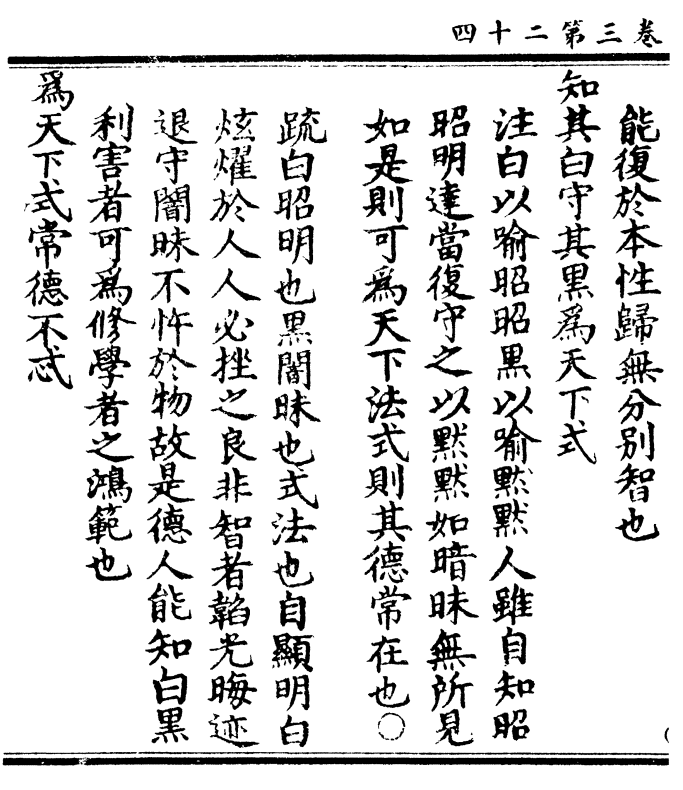 卷三第二十四
能復於本性歸無分別智也
知其白守其黑為天下式
注白以喻昭昭黑以喻黙黙人雖自知昭
昭明達當復守之以黙黙如暗昧無所見
如是則可為天下法式則其德常在也〇
䟽白昭明也黑闇昧也式法也自顯明白
炫燿於人人必挫之良非智者韜光晦迹
退守闇昧不忤於物故是德人能知白黑
利害者可為修學者之鴻範也
為天下式常德不忒